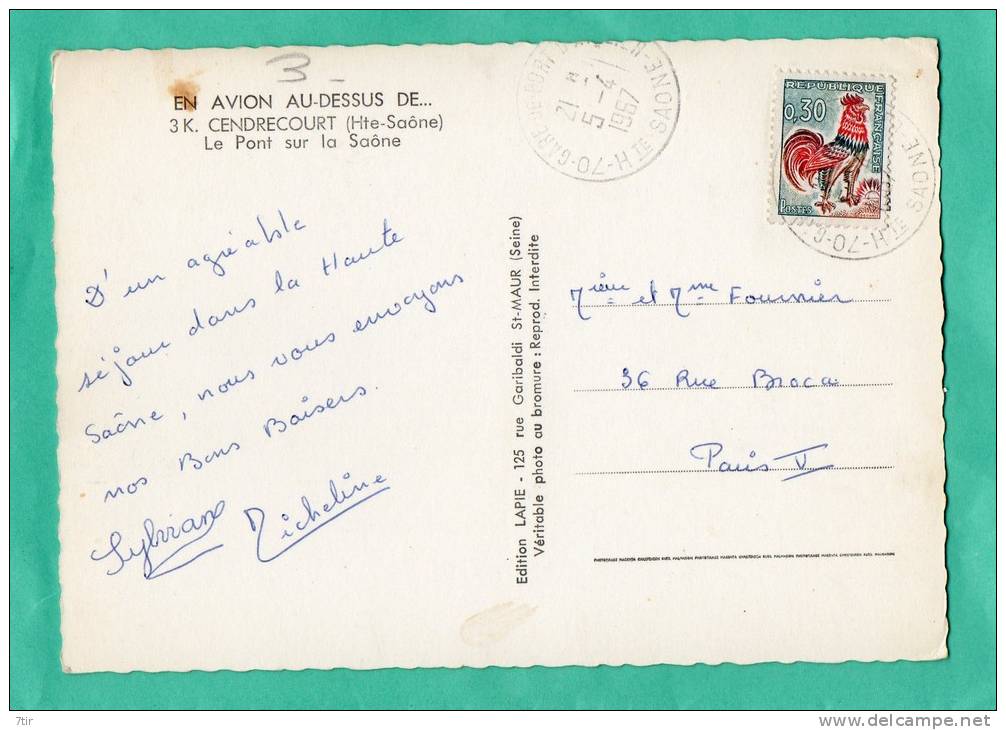 3
EN AVION AU-DESSUS DE...
3 K. CENDRECOURT (Hte-Saône)
Le Pont sur la Saône
D'un agréable
séjour dans la Haute
Saône, nous vous envoyons
nos Bons Baisers.
Micheline
Edition LAPIE - 125 rue Garibaldi St-MAUR (Seine)
Véritable photo au bromure : Reprod. Interdite
21
5-4
1967
70-HTE SAONE
REPUBLIQUE
FRANÇAISE
0,30
POSTES
70-HTE SAONE
et Mme Fournier
36 Rue Broca
Paris V
7tir
www.delcampe.net